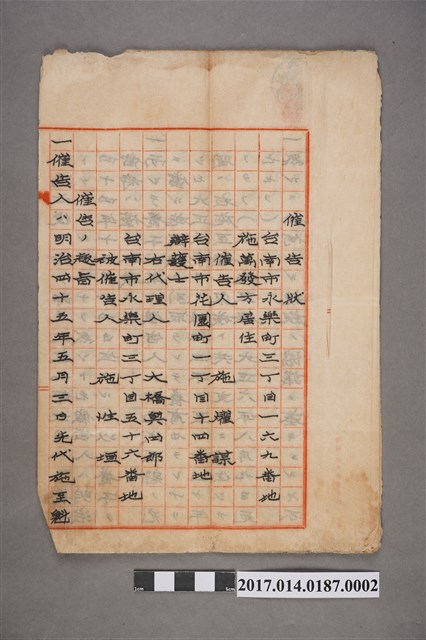 催告狀
台南市永樂町三丁目一六九番地
施萬發方居住
催告人 施濯謀
台南市花園町一丁目十四番地
辯護士
右代理人 大橋與四郎
台南市永樂町三丁目五十六番地
被催告人 施性垣
催告ノ趣旨
一催告人ハ明治四十五年五月三日先代施至魁
1cm
5cm
2017.014.0187.0002